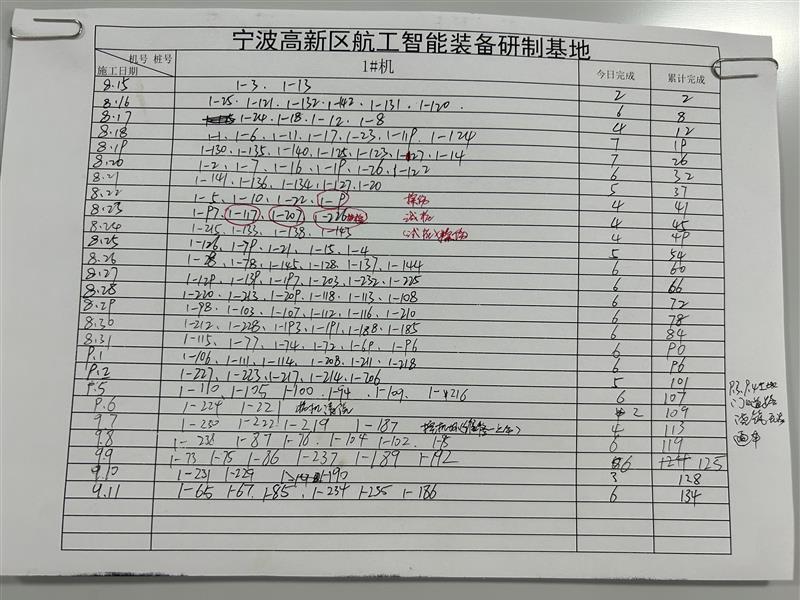 宁波高新区航工智能装备研制基地
机号 桩号 施工日期 1#机 今日完成 累计完成
8.15 1-3、1-13 2 2
8.16 1-25、1-121、1-132、1-142、1-131、1-120. 6 8
8.17 1-24、1-18、1-12、1-8 4 12
8.18 1-1、1-6、1-11、1-17、1-23、1-119、1-124 7 19
8.19 1-130、1-135、1-140、1-125、1-123、1-127、1-14 7 26
8.20 1-2、1-7、1-16、1-19、1-26、1-122 6 32
8.21 1-141、1-136、1-134、1-127、1-20 5 37
8.22 1-5、1-10、1-22、1-9 4 41
8.23 1-97、1-117、1-207、1-226 试桩 4 45
8.24 1-215、1-133、1-138、1-143 4 49
8.25 1-126、1-79、1-21、1-15、1-4 5 54
8.26 1-28、1-78、1-145、1-128、1-137、1-144 6 60
8.27 1-129、1-139、1-197、1-203、1-232、1-225 6 66
8.28 1-220、1-213、1-209、1-118、1-113、1-108 6 72
8.29 1-98、1-103、1-107、1-112、1-116、1-210 6 78
8.30 1-212、1-228、1-193、1-191、1-188、1-185 6 84
8.31 1-115、1-77、1-74、1-72、1-69、1-96 6 90
9.1 1-106、1-111、1-114、1-208、1-211、1-218 6 96
9.2 1-227、1-223、1-217、1-214、1-206 5 101
9.5 1-110、1-105、1-100、1-94、1-109、1-216 6 107
9.6 1-224 1-221 2 109
9.7 1-230 1-222 1-219 1-187 4 113
9.8 1-238 1-87 1-76 1-104 1-102 1-95 6 119
9.9 1-73 1-75 1-86 1-237 1-189 1-192 6 125
9.10 1-231 1-229 1-190 3 128
9.11 1-65 1-67 1-85 1-234 1-235 1-186 6 134